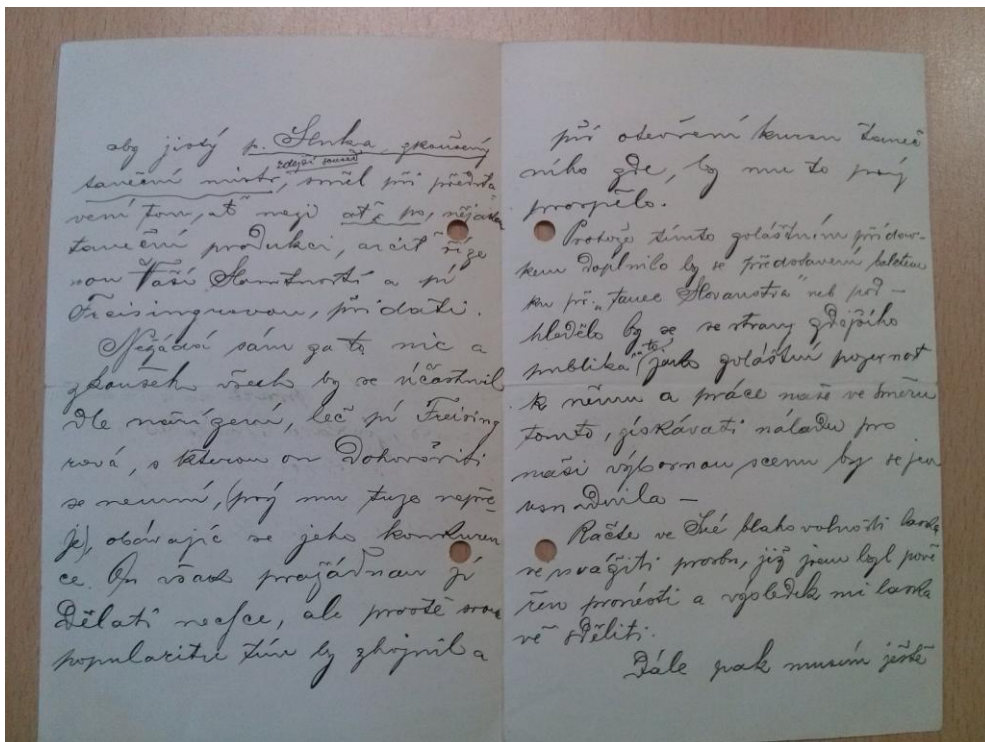 aby jistý p. Sluka, zkoušený
zdejší soused
taneční mistr, směl při předsta-
vení tom, ať mezi akty po, nějakou
taneční produkci, arciť říze
nou Vaší Slovutností a pí
Freisingrovou, přidati.
Nežádá sám za to nic a
zkoušek všech by se účastnil
dle nařízení, leč pí Freising
rová, s kterou on dohovořiti
se neumí, (prý mu tuze nepře-
je), obávajíc se jeho konkuren
ce. On však pražádnou jí
dělati nechce, ale prostě svou
popularitu tím by zbojnil a
při otevření kursu taneč
ního zde, by mu to prý
prospělo.
Protože tímto zvláštním přídav-
kem doplnilo by se představení baletem
ku př. „tanec Slovanstva" neb pod-
hledělo by se se strany zdejšího
publika, to jako zvláštní pozornost
k němu a práce naše ve směru
tomto, získávati náladu pro
naši výbornou scenu by se jen
usnadnila –
Račte ve Své blahovolnosti laska
ve uvážiti prosbu, již jsem byl pově
řen pronésti a výsledek mi laska
vě sděliti.
Dále pak musím ještě